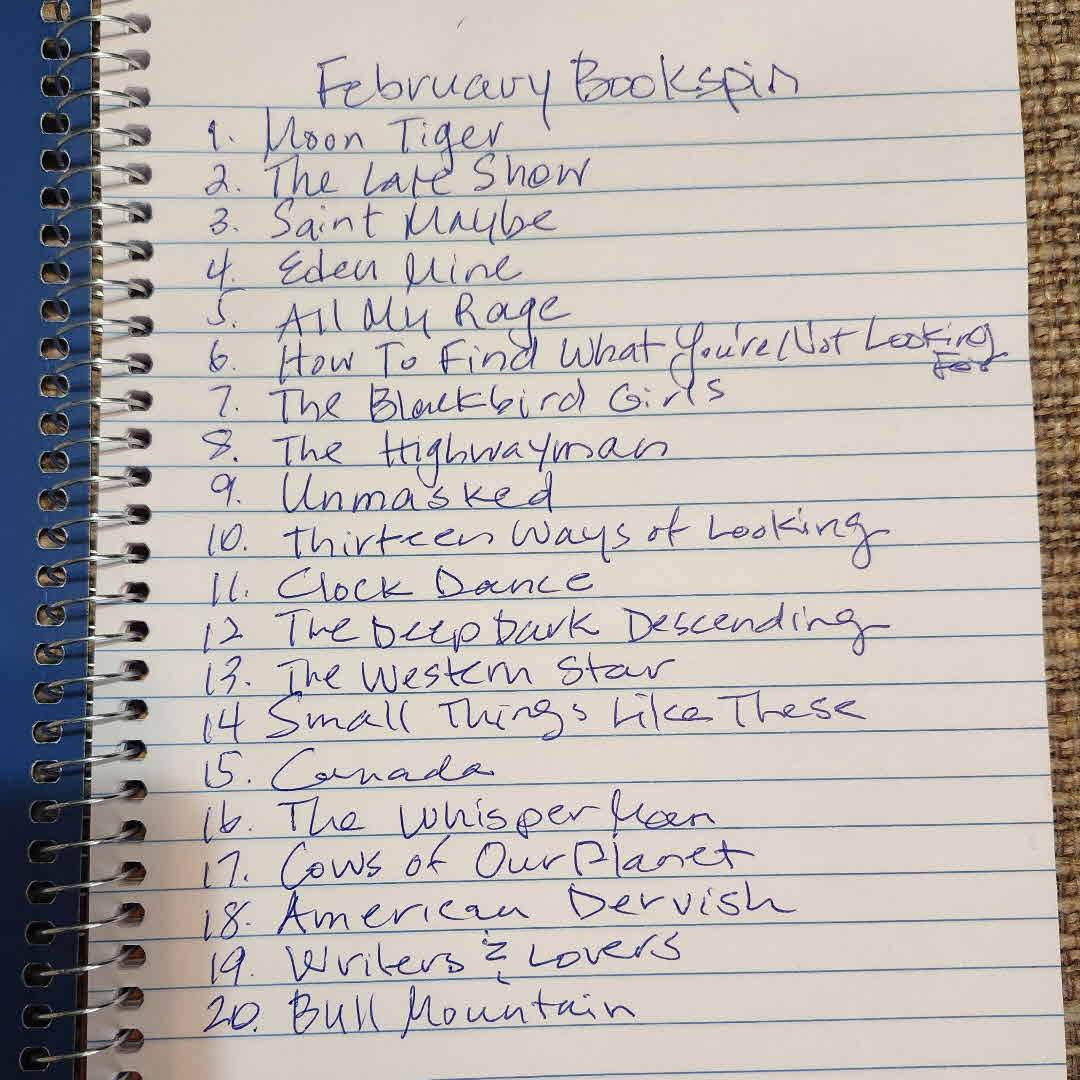 February Bookspin
1. Moon Tiger
2. The Late Show
3. Saint Maybe
4. Eden Mine
5. All My Rage
6. How To Find What You're Not Looking
For
7. The Blackbird Girls
8. The Highwayman
9. Unmasked
10. Thirteen Ways of Looking
11. Clock Dance
12 The Deep Dark Descending
13. The Western Star
14 Small Things Like These
15. Canada
16. The Whisper Man
17. Cows of Our Planet
18. American Dervish
19. Writers & Lovers
20. Bull Mountain